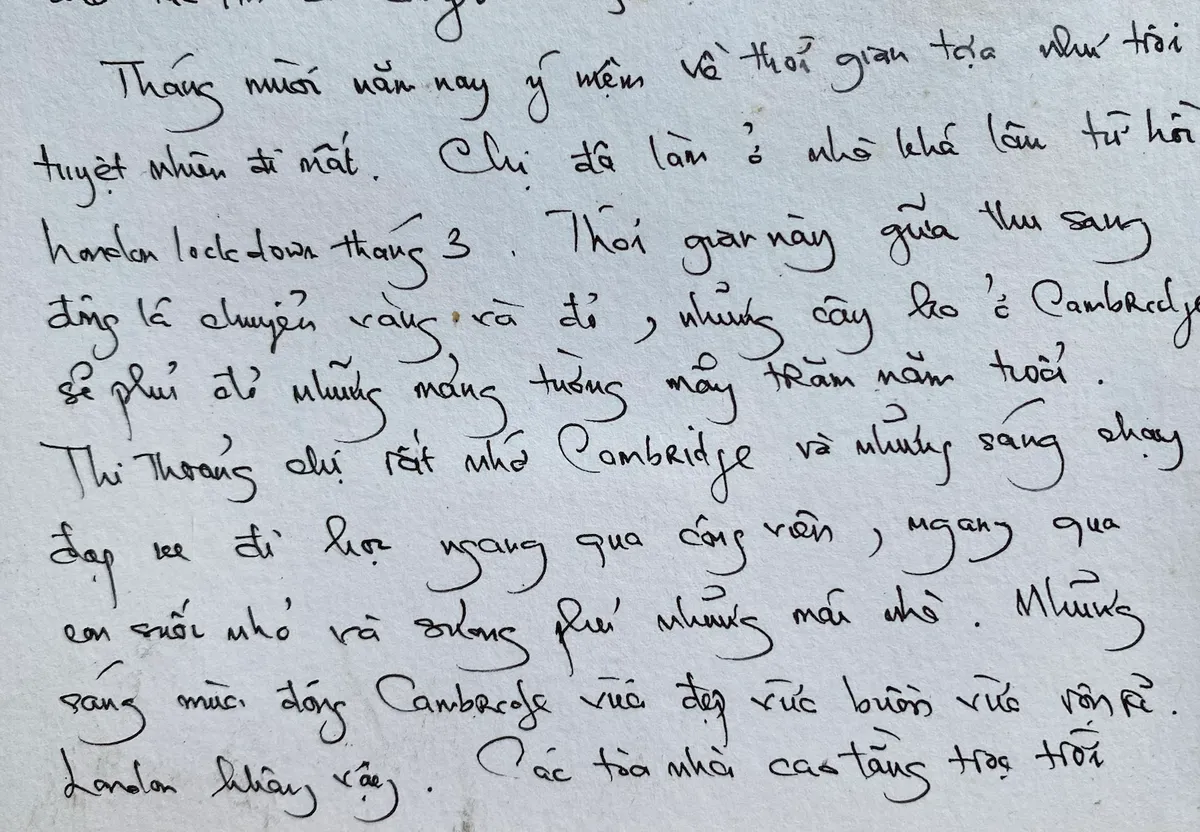 Tháng mười năm nay ý niệm về thời gian tựa như trôi
tuyệt nhiên đi mất. Chị đã làm ở nhà khá lâu từ hồi
London lockdown tháng 3. Thời gian này giữa thu sang
đông lá chuyển vàng và đỏ, những cây leo ở Cambridge
sẽ phủ đỏ những mảng tường mấy trăm năm tuổi.
Thi Thoảng chị rất nhớ Cambridge và những sáng chạy
đạp xe đi học ngang qua công viên, ngang qua
con suối nhỏ và sương phủ những mái nhà. Những
sáng mùa đông Cambridge vừa đẹp vừa buồn vừa vồn rã.
London không vậy. Các tòa nhà cao tầng trơ trọi